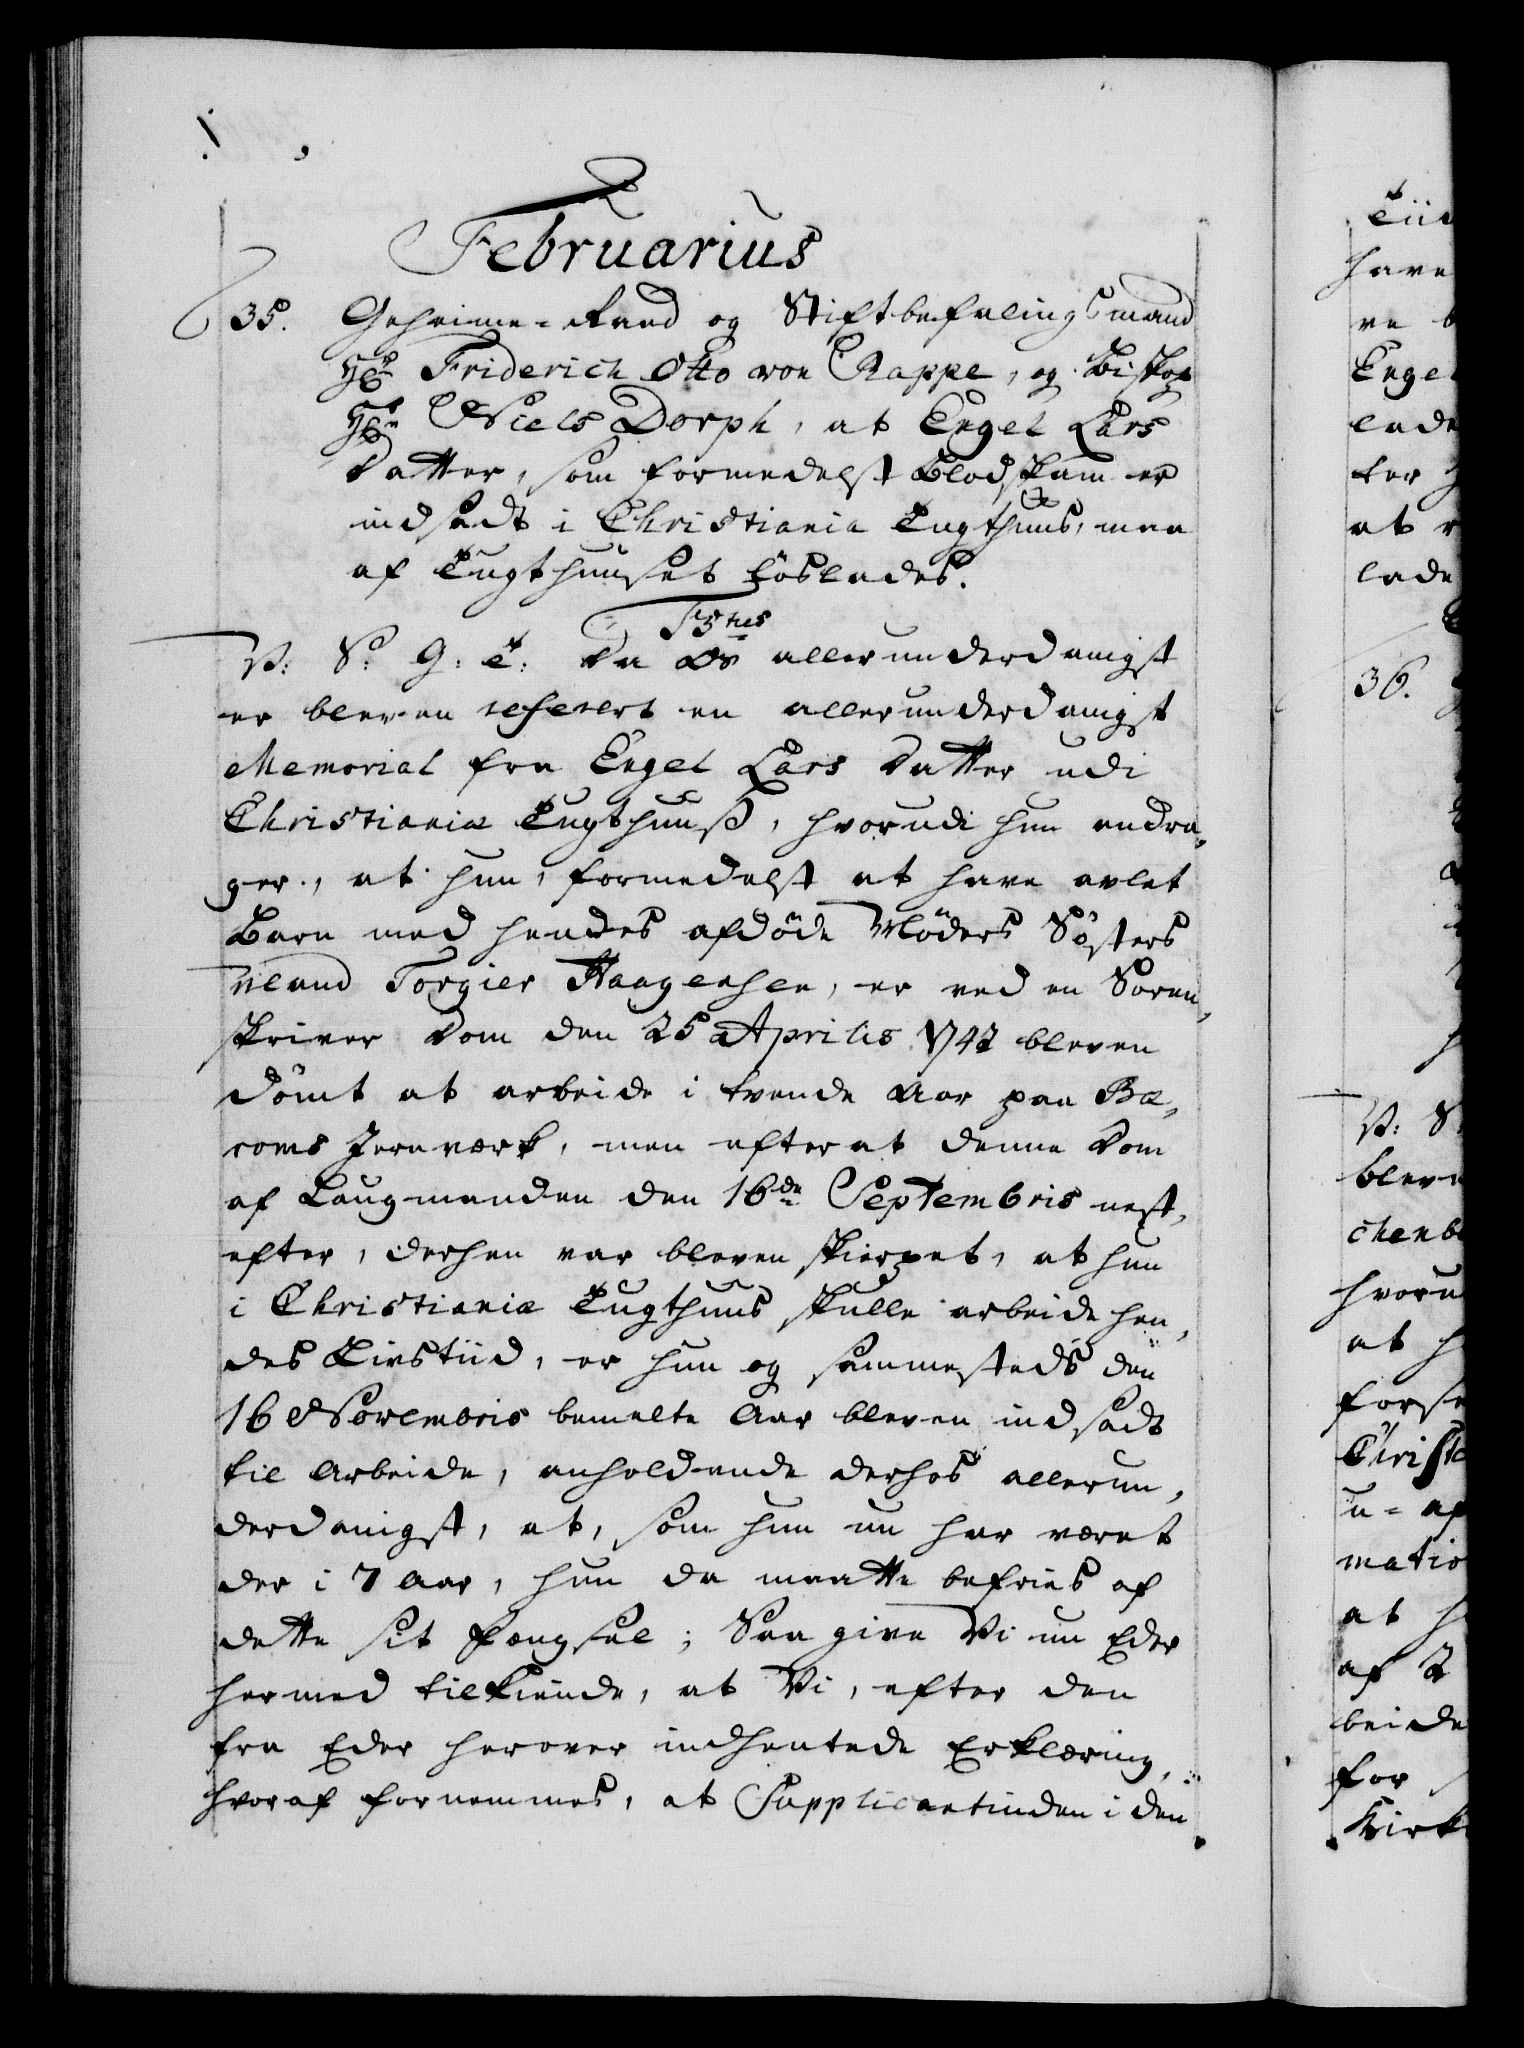 Februarius
35. Geheime-Raad og Stiftbefalingsmand
Hr. Friderich Otto von Rappe, og Biskop
Hr. Niels Dorph, at Engel Lars
Datter, som formedelst Blodskam er
indsadt i Christiania Tugthuus, maa
af Tugthuuset løslades.
V: S: G: T: Da Os allerunderdanigst
er bleven refereret en allerunderdanigst
Memorial fra Engel Lars Datter udi
Christianiæ Tugthuuß, hvorudi hun andra,
ger, at hun, formedelst at have avlet
Barn med hendes afdöde Möders Sösters
Mand Torgier Haagensen, er ved en Soren,
skriver Dom den 25 Aprilis 1742 bleven
dömt at arbeide i tvende Aar paa Bæ,
roms Jernværk, men efter at denne Dom
af Laugmanden den 16de Septembris nest,
efter, derhen var bleven skierpet, at hun
i Christianiæ Tugthuus skulle arbeide hen,
des Livstiid, er hun og sammesteds den
16 Novembris bemelte Aar bleven indsadt
til Arbeide, anholdende derhos allerun,
derdanigst, at, som hun nu har været
der i 7 Aar, hun da maatte befries af
dette sit Fængsel; Saa give Vi nu Eder
hermed tilkiende, at Vi, efter den
fra Eder herover indhentede Erklæring,
hvoraf fornemmes, at Supplicantinden i den
Tiid
have
Engel
lade
at
lade
36.
V: S:
bleve
hvoru
at
Christ
matio
at
af 2
beide
for
Kirk